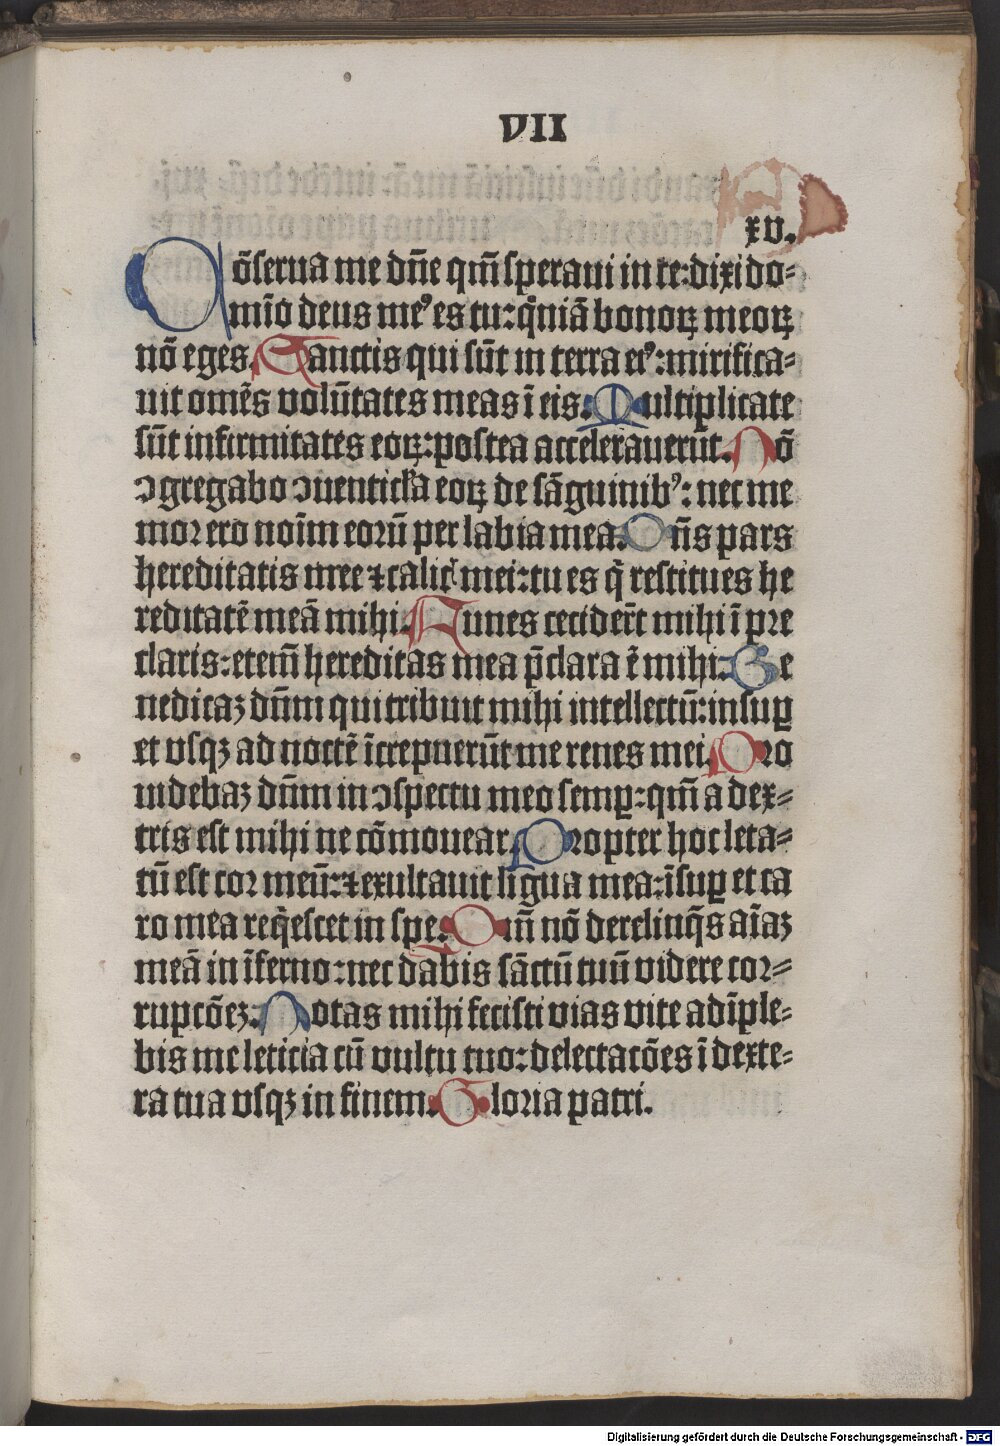 VII
xv.
Cõserua me dñe qm̃ speraui in te: dixi do⸗
mĩo deus meꝰ es tu: qñiã bonoꝝ meoꝝ
nõ eges. Sanctis qui sũt in terra eiꝰ: mirifica⸗
uit om̃es volũtates meas ĩ eis. Multiplicate
sũt infirmitates eoꝝ: postea accelerauerũt. Nõ
ↄgregabo ↄuenticl̃a eoꝝ de sãguinibꝰ: nec me
mor ero noĩm eorũ per labia mea. Dñs pars
hereditatis mee ⁊ calic̃ mei: tu es q̃ restitues he
reditatẽ meã mihi. Funes cecider̃t mihi ĩ pre
claris: etem̃ hereditas mea p̃clara ẽ mihi: Be
nedicaꝫ dñm qui tribuit mihi intellectũ: insuꝑ
et vsqꝫ ad noctẽ ĩcrepuerũt me renes mei. Pro
uidebaꝫ dñm in ↄspectu meo semꝑ: qm̃ a dex⸗
tris est mihi ne cõmouear. Propter hoc leta⸗
tũ est cor meũ: ⁊ exultauit lĩgua mea: ĩsuꝑ et ca
ro mea req̃escet in spe. Qm̃ nõ derelinq̃s aĩaꝫ
meã in ĩferno: nec dabis sãctũ tuũ videre cor⸗
rupcõeꝫ. Notas mihi fecisti vias vite adĩple⸗
bis me leticia cũ vultu tuo: delectacões ĩ dexte⸗
ra tua vsqꝫ in finem. Gloria patri.
Digitalisierung gefördert durch die Deutsche Forschungsgemeinschaft - DFG